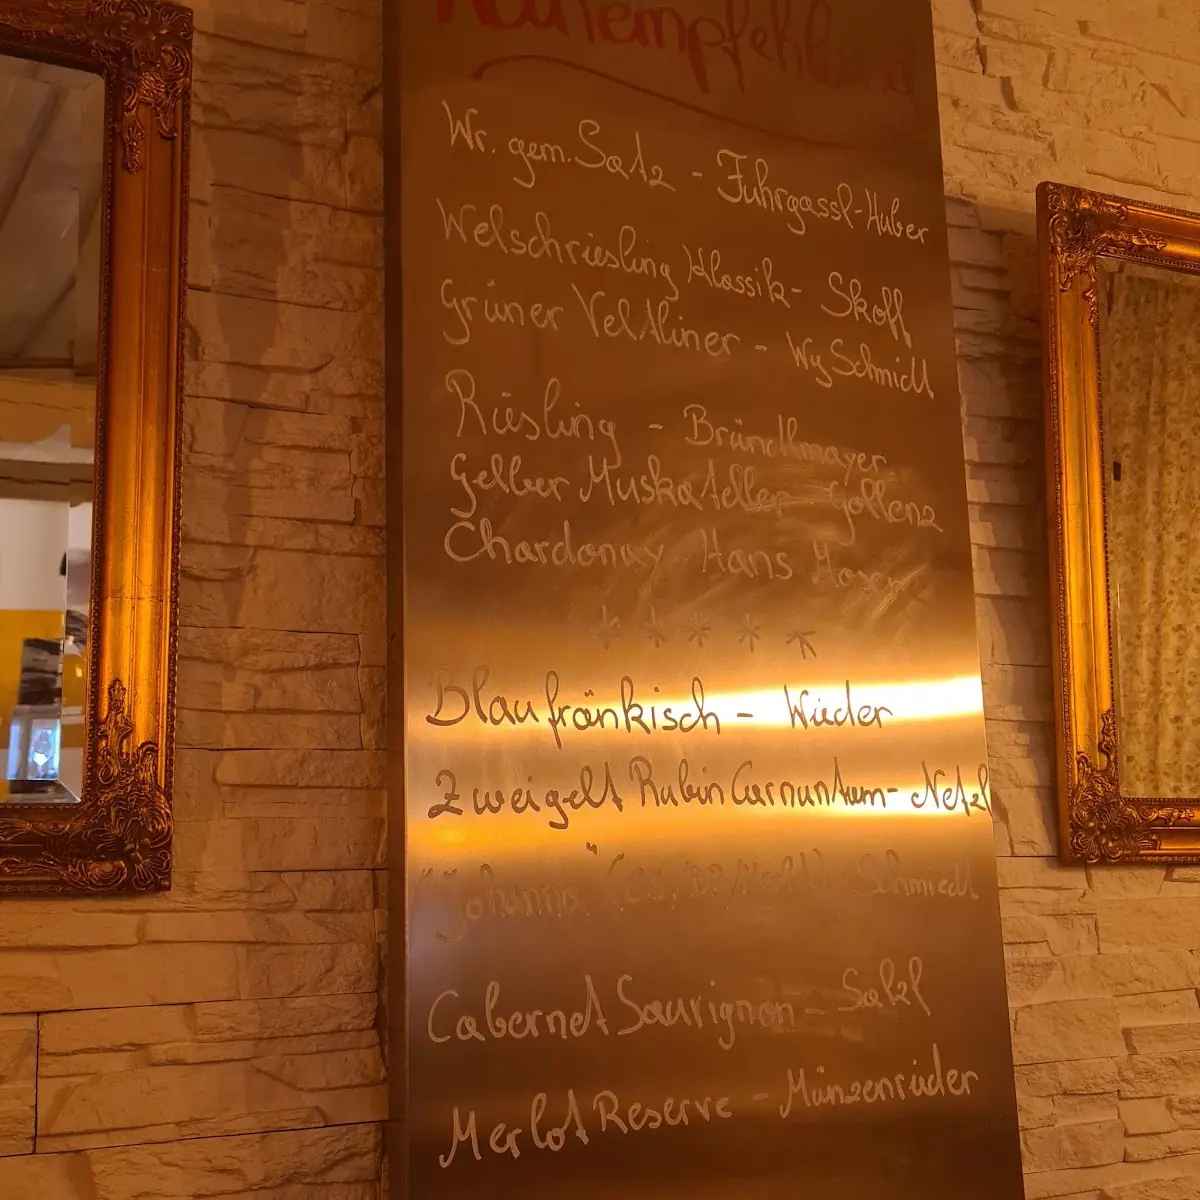 Weinempfehlung
Wr. gem. Satz - Fuhrgassl-Huber
Welschriesling Klassik - Skoff
Grüner Veltliner - Wg Schmidl
Riesling - Bründlmayer
Gelber Muskateller - Gollenz
Chardonay - Hans Moser
* * * * *
Blaufränkisch - Wieder
Zweigelt Rubin Carnuntum - Netzl
"Johanna" Schmiedl
Cabernet Sauvignon - Salzl
Merlot Reserve - Münzenrieder